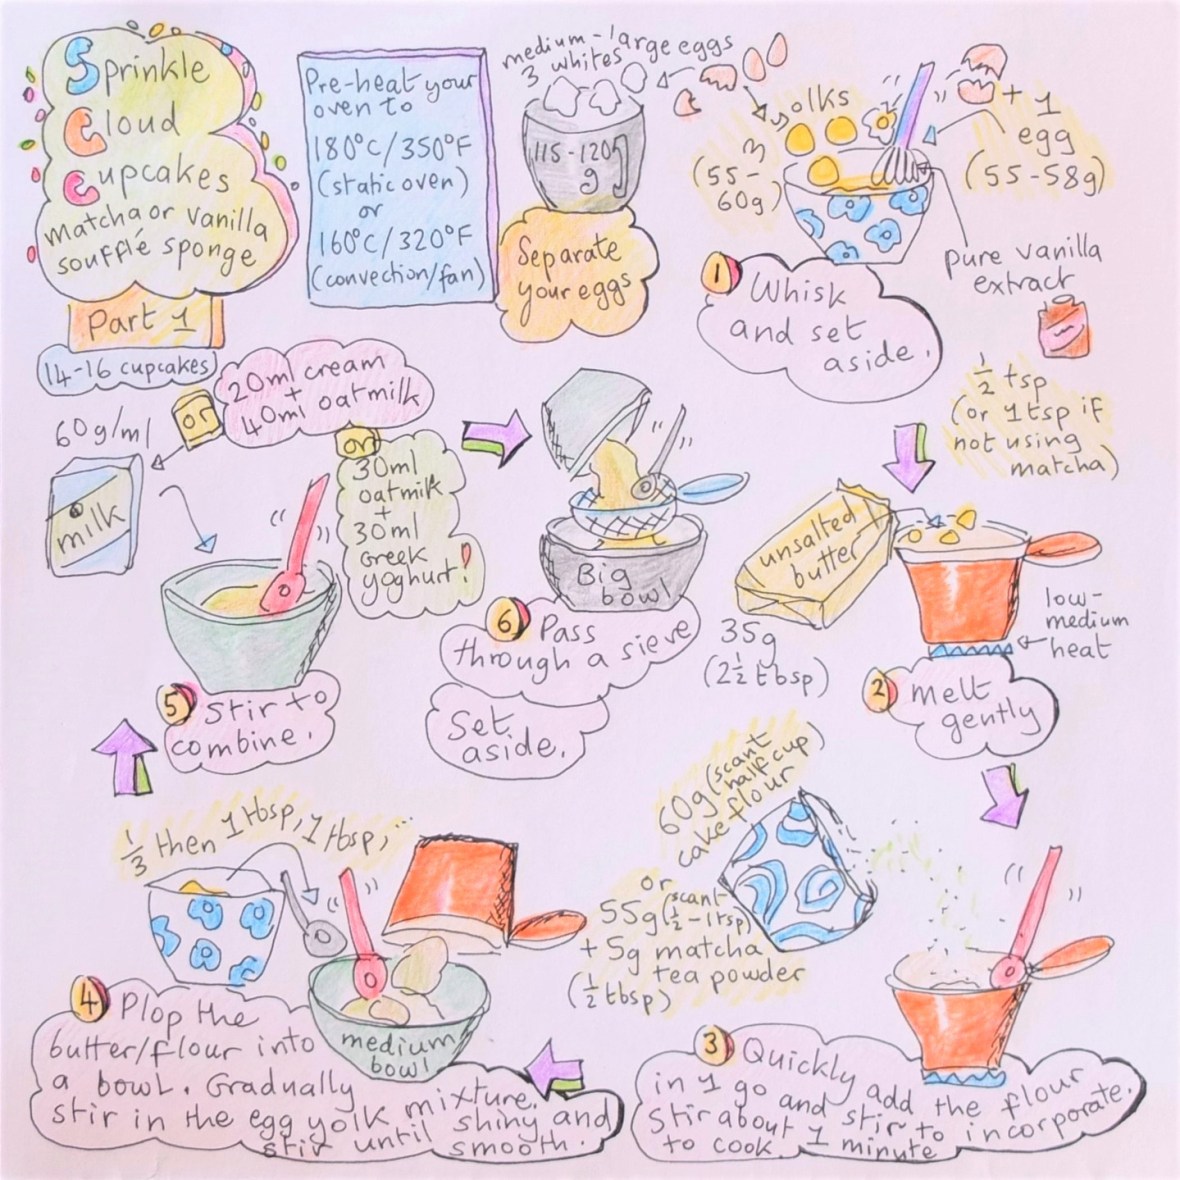 Sprinkle
Cloud
Cupcakes
matcha or vanilla
soufflé sponge
Part 1
14-16 cupcakes
Pre-heat your
oven to
180°C/350°F
(static oven)
or
160°C/320°F
(convection/fan)
medium-large eggs
3 whites
115-120g
g
Separate
your eggs
yolks
3
(55-
60g)
+ 1
egg
(55-58g)
pure vanilla
extract
1/2 tsp
(or 1 tsp if
not using
matcha)
1 Whisk
and set
aside.
unsalted
butter
35g
(2 1/2 tbsp)
low-
medium
heat
2 melt
gently
60g (scant
half cup)
cake flour
or
55g (scant
1/2 - 1 tsp)
+ 5g matcha
tea powder
(1/2 tbsp)
3 Quickly add the flour
in 1 go and stir to incorporate.
Stir about 1 minute
to cook.
1/3 then 1 tbsp, 1 tbsp, ...
medium
bowl
4 Plop the
butter/flour into
a bowl. Gradually
stir in the egg yolk mixture.
stir until shiny and
smooth.
60g/ml
milk
or
20ml cream
+
40ml oatmilk
or
30ml
oatmilk
+
30ml
Greek
yoghurt!
5 Stir to
combine.
Big
bowl
6 Pass
through a sieve
Set
aside.